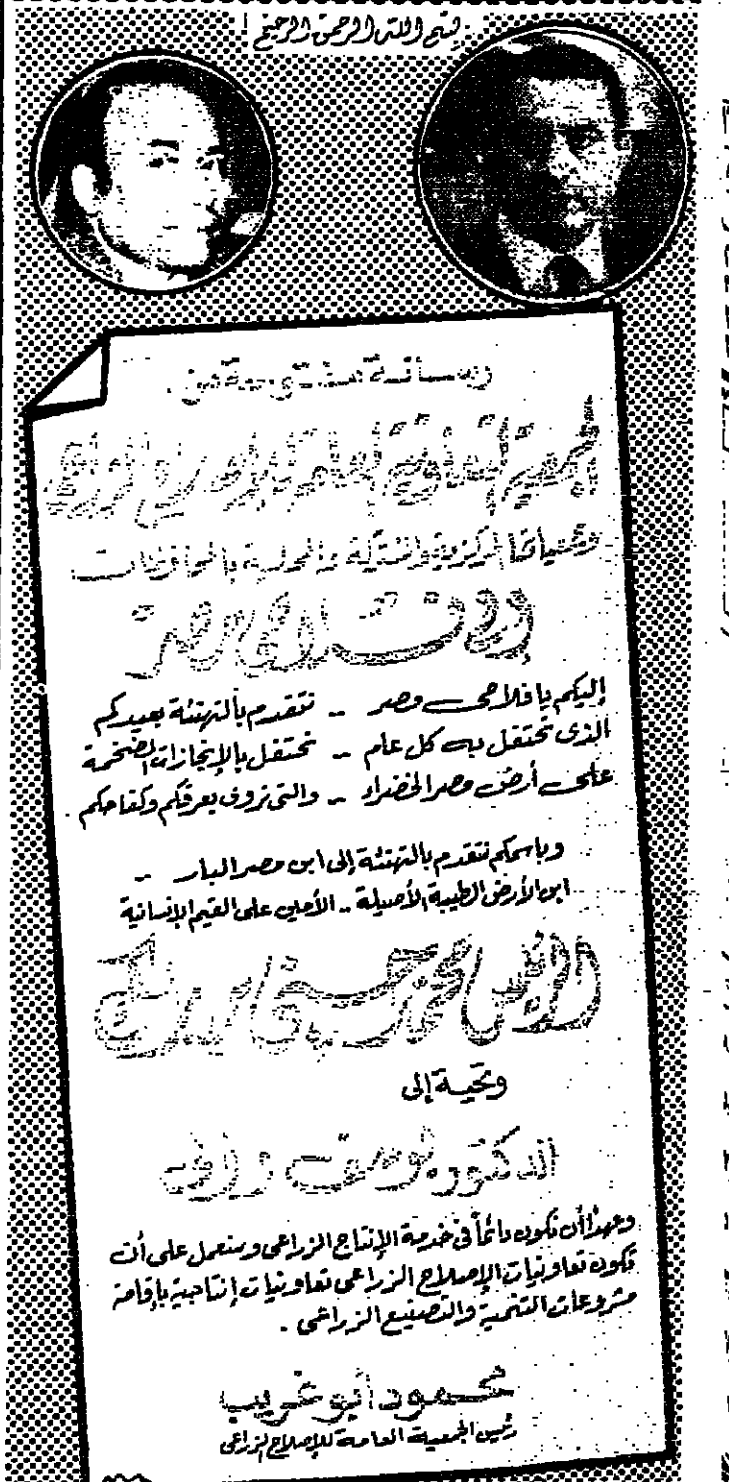 بسم الله الرحمن الرحيم
رسالة مفتوحة من
الجمعية التعاونية العامة للإصلاح الزراعى
وجمعياتها المركزية والمشتركة والمحلية بالمحافظات
إلى فلاحى مصر
إليكم يا فلاحى مصر -- نتقدم بالتهنئة بعيدكم
الذى نحتفل به كل عام -- نحتفل بالإنجازات الضخمة
على أرض مصر الخضراء -- والتى تروى بعرقكم وكفاحكم .
وباسمكم نتقدم بالتهنئة إلى ابن مصر البار --
ابن الأرض الطيبة الأصيلة -- الأمين على القيم الإنسانية
الرئيس محمد حسنى مبارك
وتحية إلى
الدكتور يوسف والى
وعهداً أن نكون دائماً فى خدمة الإنتاج الزراعى وسنعمل على أن
تكون تعاونيات الإصلاح الزراعى تعاونيات إنتاجية بإقامة
مشروعات التنمية والتصنيع الزراعى .
محمود أبو غريب
رئيس الجمعية العامة للإصلاح الزراعى